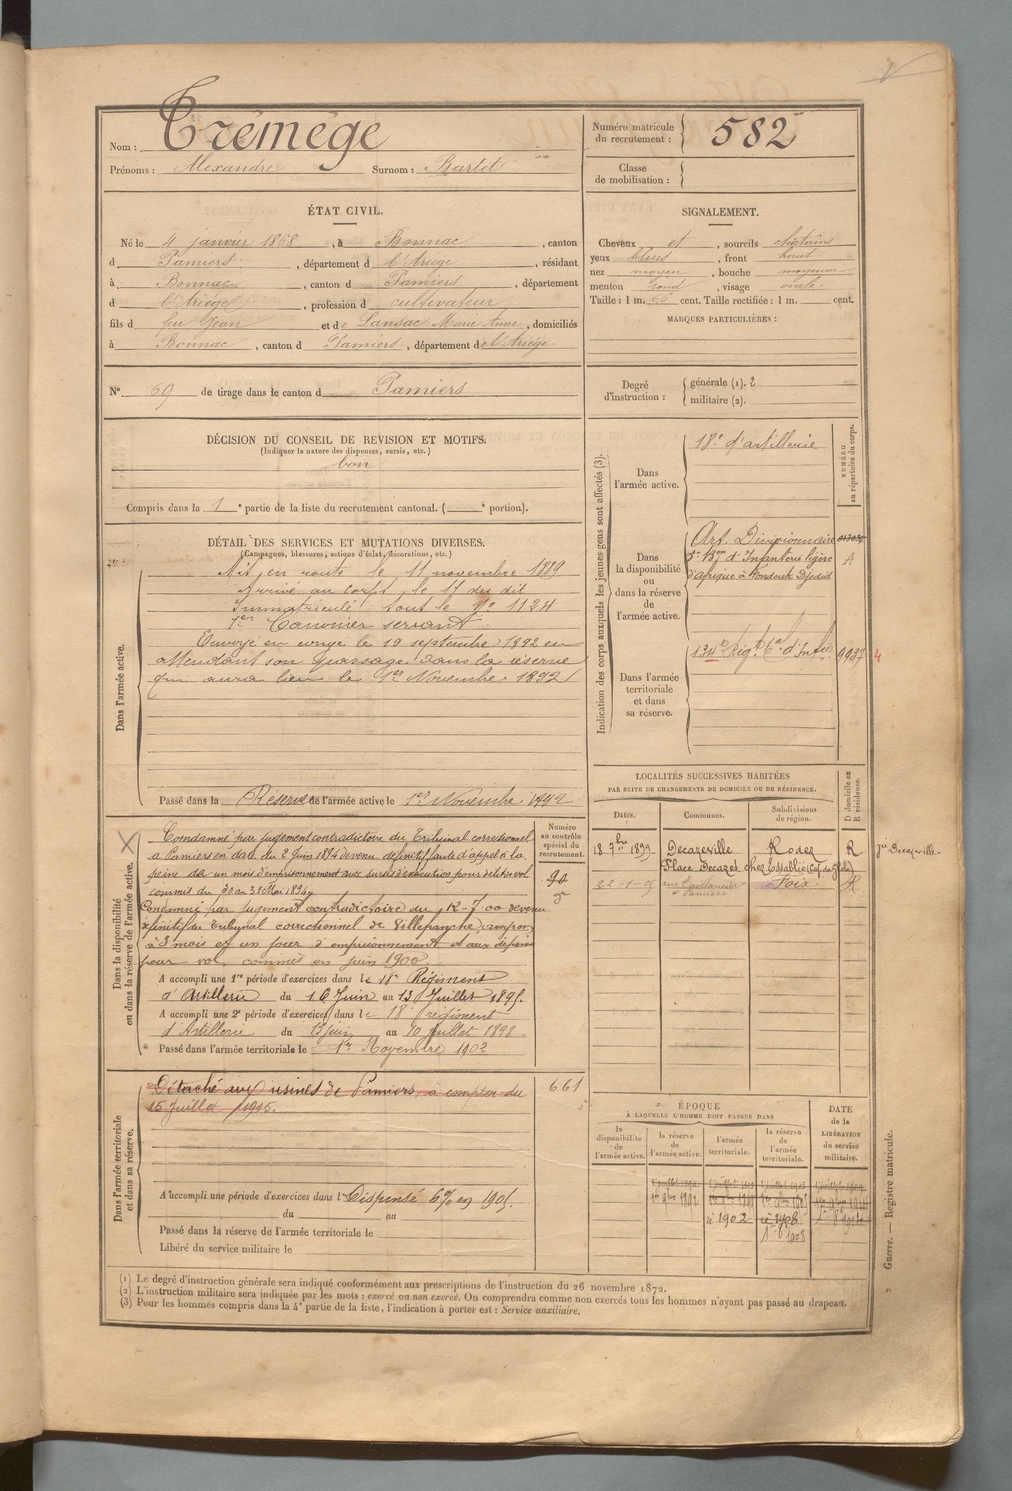 Nom : Trémège
Prénoms : Alexandre Surnom : Barlet
Numéro matricule du recrutement : 582
Classe de mobilisation :
ÉTAT CIVIL.
Né le 4 janvier 1868, à Bonnac, canton
d Pamiers, département d l'Ariège, résidant
à Bonnac, canton d Pamiers, département
d l'Ariège, profession d cultivateur
fils d feu Jean et de Lansac Marie Anne, domiciliés
à Bonnac, canton d Pamiers, département de l'Ariège
SIGNALEMENT.
Cheveux et, sourcils châtains
yeux bleus, front haut
nez moyen, bouche moyenne
menton rond, visage ovale
Taille : 1 m. 66 cent. Taille rectifiée : 1 m. cent.
MARQUES PARTICULIÈRES :
N° 69 de tirage dans le canton d Pamiers
Degré d'instruction : générale (1). 2
militaire (2).
DÉCISION DU CONSEIL DE REVISION ET MOTIFS.
(Indiquer la nature des dispenses, sursis, etc.)
bon
Compris dans la 1e partie de la liste du recrutement cantonal. ( e portion).
DÉTAIL DES SERVICES ET MUTATIONS DIVERSES.
(Campagnes, blessures, actions d'éclat, décorations, etc.)
Dans l'armée active.
Mis en route le 11 novembre 1889
Arrivé au corps le 17 du dit
Immatriculé sous le N° 1124
1er Canonnier servant
Envoyé en congé le 19 septembre 1892 en
attendant son passage dans la réserve
qui aura lieu le 1er Novembre 1892
Passé dans la Réserve de l'armée active le 1er Novembre 1892
Indication des corps auxquels les jeunes gens sont affectés (3).
NUMÉRO au répertoire du corps.
Dans l'armée active.
18e d'artillerie
Dans la disponibilité ou dans la réserve de l'armée active.
Art. Divisionnaire
5e Bon d'Infanterie légère A
d'Afrique à
Dans l'armée territoriale et dans sa réserve.
134e Régt d'Infie 9937 4
LOCALITÉS SUCCESSIVES HABITÉES
PAR SUITE DE CHANGEMENTS DE DOMICILE OU DE RÉSIDENCE.
Dates. Communes. Subdivisions de région. D domicile ou R résidence.
18 7bre 1899. Decazeville Rodez R Decazeville.
Place Decazes chez Establie
22-1-05 Foix R
à Pamiers
Dans la disponibilité ou dans la réserve de l'armée active.
Numéro au contrôle spécial du recrutement.
90
Condamné par jugement contradictoire du Tribunal correctionnel
à Pamiers en date du 2 Juin 1894 devenu définitif faute d'appel à la
peine de un mois d'emprisonnement avec sursis d'exécution pour délit de vol
commis du 30 au 31 Mai 1894
Condamné par Jugement contradictoire du 12-7-00 devenu
définitif du Tribunal correctionnel de Villefranche
à 3 mois et un jour d'emprisonnement et aux dépens
pour vol commis en juin 1900
A accompli une 1re période d'exercices dans le 18e Régiment
d'Artillerie du 16 Juin au 13 Juillet 1895.
A accompli une 2e période d'exercices dans le 18e régiment
d'Artillerie du 13 juin au 10 juillet 1898
Passé dans l'armée territoriale le 1er Novembre 1902
Dans l'armée territoriale et dans sa réserve.
Détaché aux usines de Pamiers, à compter du 661
15 Juillet 1915.
A accompli une période d'exercices dans l Dispensé 6% en 1905.
du au
Passé dans la réserve de l'armée territoriale le
Libéré du service militaire le
ÉPOQUE
À LAQUELLE L'HOMME DOIT PASSER DANS
la disponibilité de l'armée active.
la réserve de l'armée active.
l'armée territoriale.
la réserve de l'armée territoriale.
DATE de la LIBÉRATION du service militaire.
1902 1908
(1) Le degré d'instruction générale sera indiqué conformément aux prescriptions de l'instruction du 26 novembre 1872.
(2) L'instruction militaire sera indiquée par les mots : exercé ou non exercé. On comprendra comme non exercés tous les hommes n'ayant pas passé au drapeau.
(3) Pour les hommes compris dans la 4e partie de la liste, l'indication à porter est : Service auxiliaire.
Guerre. — Registre matricule.
2